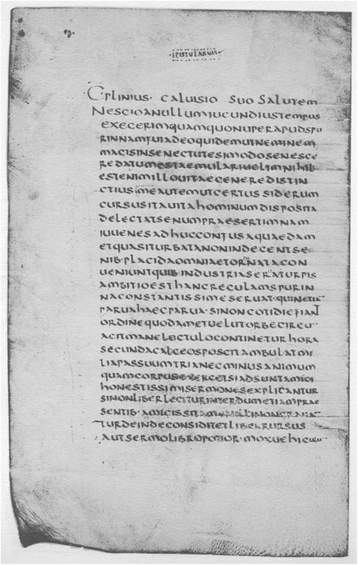 ·EPISTULARUM·
C·PLINIUS· CALUISIO SUO SALUTEM
NESCIOANULLUMIUCUNDIUSTEMPUS
EXEGERIMQUAMQUONUPERAPUDSPU
RINNAMFUIADEOQUIDEMUTNEMINEM
MAGISINSENECTUTESIMODOSENESCE
REDATUMESTAEMULARIUELIMNIHIL
ESTENIMILLOUITAEGENEREDISTIN
CTIUSMEAUTEMUTCERTUSSIDERUM
CURSUSITAUITAHOMINUMDISPOSITA
DELECTATSENUMPRAESERTIMNAM
IUUENESADHUCCONFUSAQUAEDAM
ETQUASITURBATANONINDECENTSE
NIB·PLACIDAOMNIAETORNATACON
UENIUNTQUIB·INDUSTRIASERATURPIS
AMBITIOESTHANCREGULAMSPURIN
NACONSTANTISSIMESERUAT·QUINETIA
PARUAHAECPARUA·SINONCOTIDIEFIANT
ORDINEQUODAMETUELUTORBECIRCU
AGITMANELECTULOCONTINETURHORA
SECUNDACALCEOSPOSCITAMBULATMI
LIAPASSUUMTRIANECMINUSANIMUM
QUAMCORPUSEXERCETSIADSUNTAMICI
HONESTISSIMISERMONESEXPLICANTUR
SINONLIBERLEGITURINTERDUMETIAMPRAE
SENTIB·AMICISSITAMENILLINONGRAUAN
TURDEINDECONSIDITETLIBERRURSUS
AUTSERMOLIBROPOTIOR·MOXUEHICULUM